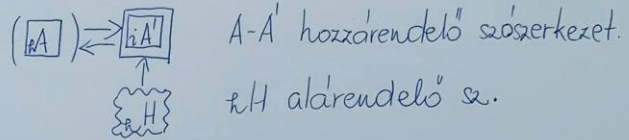 (hA) iA' A-A' hozzárendelő szószerkezet.
hH alárendelő sz.